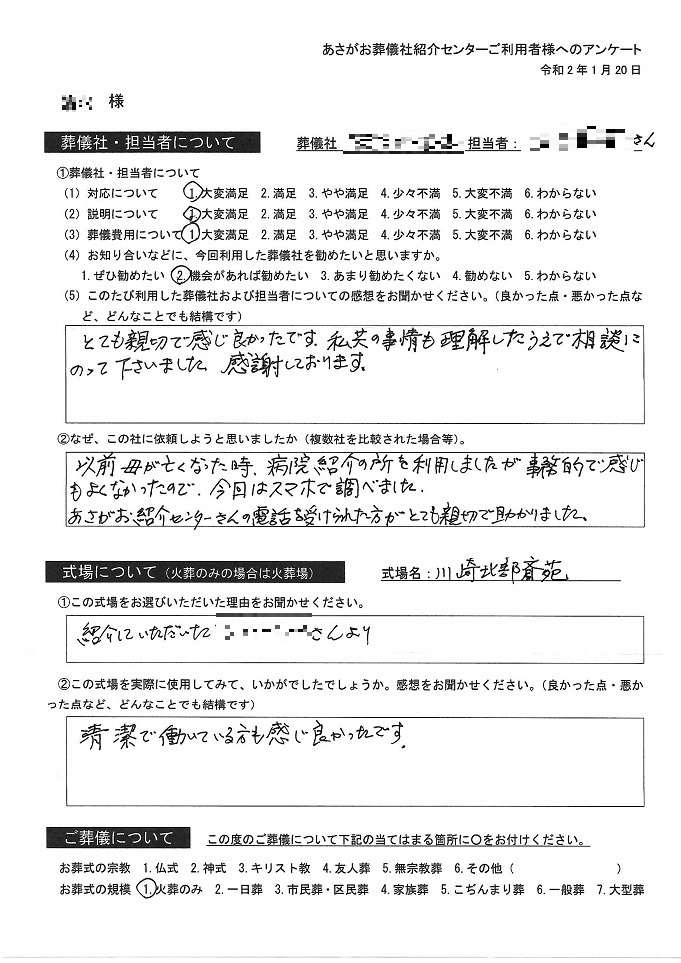 あさがお葬儀社紹介センターご利用者様へのアンケート
令和2年1月20日
様
葬儀社・担当者について
葬儀社 担当者： さん
①葬儀社・担当者について
(1) 対応について 1.大変満足 2.満足 3.やや満足 4.少々不満 5.大変不満 6.わからない
(2) 説明について 1.大変満足 2.満足 3.やや満足 4.少々不満 5.大変不満 6.わからない
(3) 葬儀費用について 1.大変満足 2.満足 3.やや満足 4.少々不満 5.大変不満 6.わからない
(4) お知り合いなどに、今回利用した葬儀社を勧めたいと思いますか。
1.ぜひ勧めたい 2.機会があれば勧めたい 3.あまり勧めたくない 4.勧めない 5.わからない
(5) このたび利用した葬儀社および担当者についての感想をお聞かせください。（良かった点・悪かった点な
ど、どんなことでも結構です）
とても親切で感じ良かったです。私共の事情も理解したうえで相談に
のって下さいました。感謝しております。
②なぜ、この社に依頼しようと思いましたか（複数社を比較された場合等）。
以前母が亡くなった時、病院紹介の所を利用しましたが事務的で感じ
もよくなかったので、今回はスマホで調べました。
あさがお紹介センターさんの電話を受けられた方がとても親切で助かりました。
式場について（火葬のみの場合は火葬場）
式場名：川崎北部斎苑
①この式場をお選びいただいた理由をお聞かせください。
紹介していただいた さんより
②この式場を実際に使用してみて、いかがでしたでしょうか。感想をお聞かせください。（良かった点・悪か
った点など、どんなことでも結構です）
清潔で働いている方も感じ良かったです。
ご葬儀について
この度のご葬儀について下記の当てはまる箇所に〇をお付けください。
お葬式の宗教 1.仏式 2.神式 3.キリスト教 4.友人葬 5.無宗教葬 6.その他（ ）
お葬式の規模 1.火葬のみ 2.一日葬 3.市民葬・区民葬 4.家族葬 5.こぢんまり葬 6.一般葬 7.大型葬